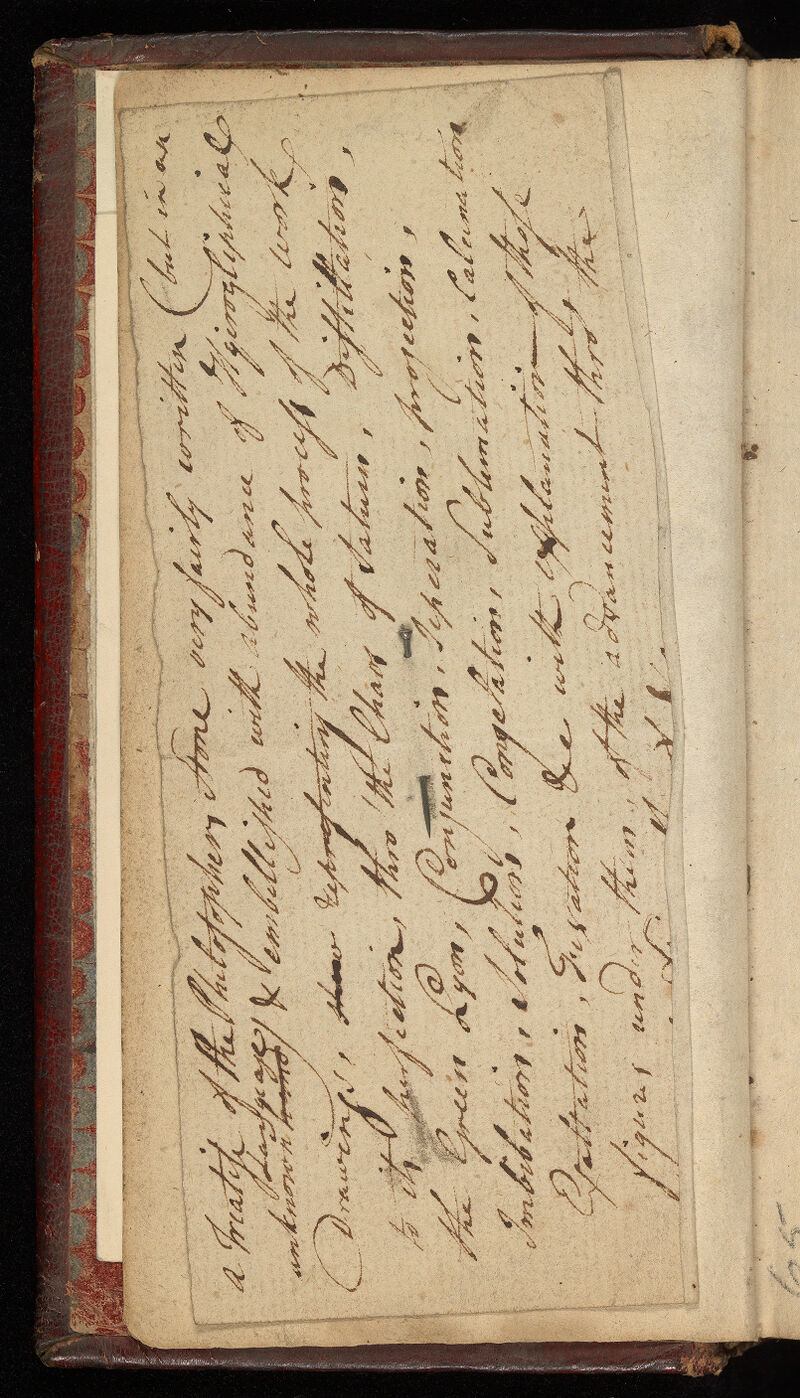 a Treatise of the Philosophers stone very fairly written (but in an
Language
unknown hand) & embellished with abundance of Hyerogliphical
Drawings, representing the whole process of the work
to its perfection, thro' the Chaos of Saturn, Distillation,
the Green Lyon, Conjunction, Seperation, projection,
Imbibation, Solution, Congelation, Sublimation, Calcination
Exaltation, Fixation &c with explanation of those
figures under them, of the advancement thro the